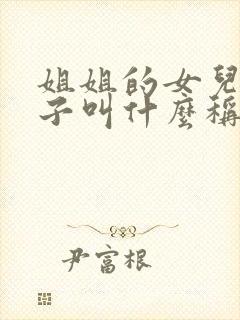 姐姐的女兒
子叫什麼稱
尹富根